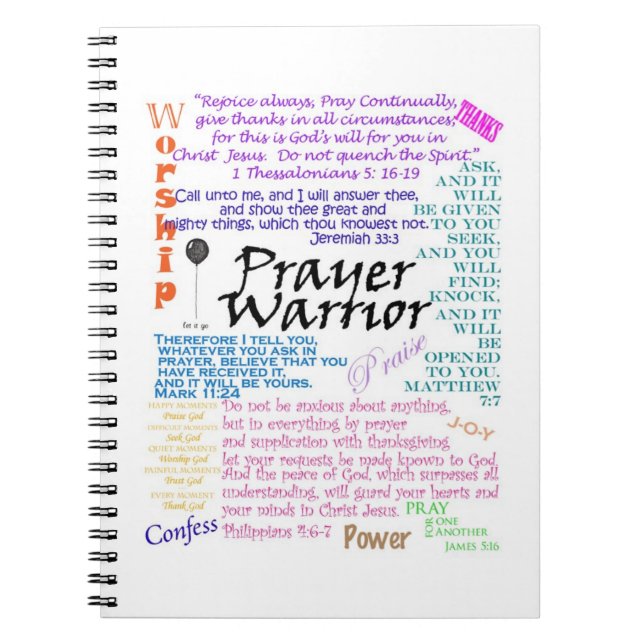 Worship
“Rejoice always, Pray Continually,
give thanks in all circumstances;
for this is God’s will for you in
Christ Jesus. Do not quench the Spirit.”
1 Thessalonians 5: 16-19
THANKS
Call unto me, and I will answer thee,
and show thee great and
mighty things, which thou knowest not.
Jeremiah 33:3
ASK,
AND IT
WILL
BE GIVEN
TO YOU
SEEK,
AND YOU
WILL
FIND;
KNOCK,
AND IT
WILL
BE
OPENED
TO YOU.
MATTHEW
7:7
let it go
Prayer
Warrior
Therefore I tell you,
whatever you ask in
prayer, believe that you
have received it,
and it will be yours.
Mark 11:24
Praise
HAPPY MOMENTS
Praise God
DIFFICULT MOMENTS
Seek God
QUIET MOMENTS
Worship God
PAINFUL MOMENTS
Trust God
EVERY MOMENT
Thank God
Do not be anxious about anything,
but in everything by prayer
and supplication with thanksgiving
let your requests be made known to God.
And the peace of God, which surpasses all
understanding, will guard your hearts and
your minds in Christ Jesus.
Philippians 4:6-7
J-O-Y
PRAY
FOR ONE
ANOTHER
JAMES 5:16
Confess
Power